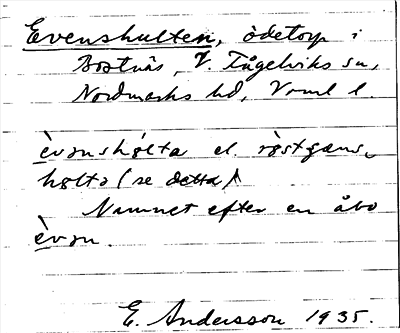 Evenshulten, ödetorp i
Bostnäs, V. Fågelviks sn,
Nordmarks hd, Vrml l.
èvənshøl̀ta el.
hølta (se detta)
Namnet efter en åbo
èvən.
E. Andersson 1935.